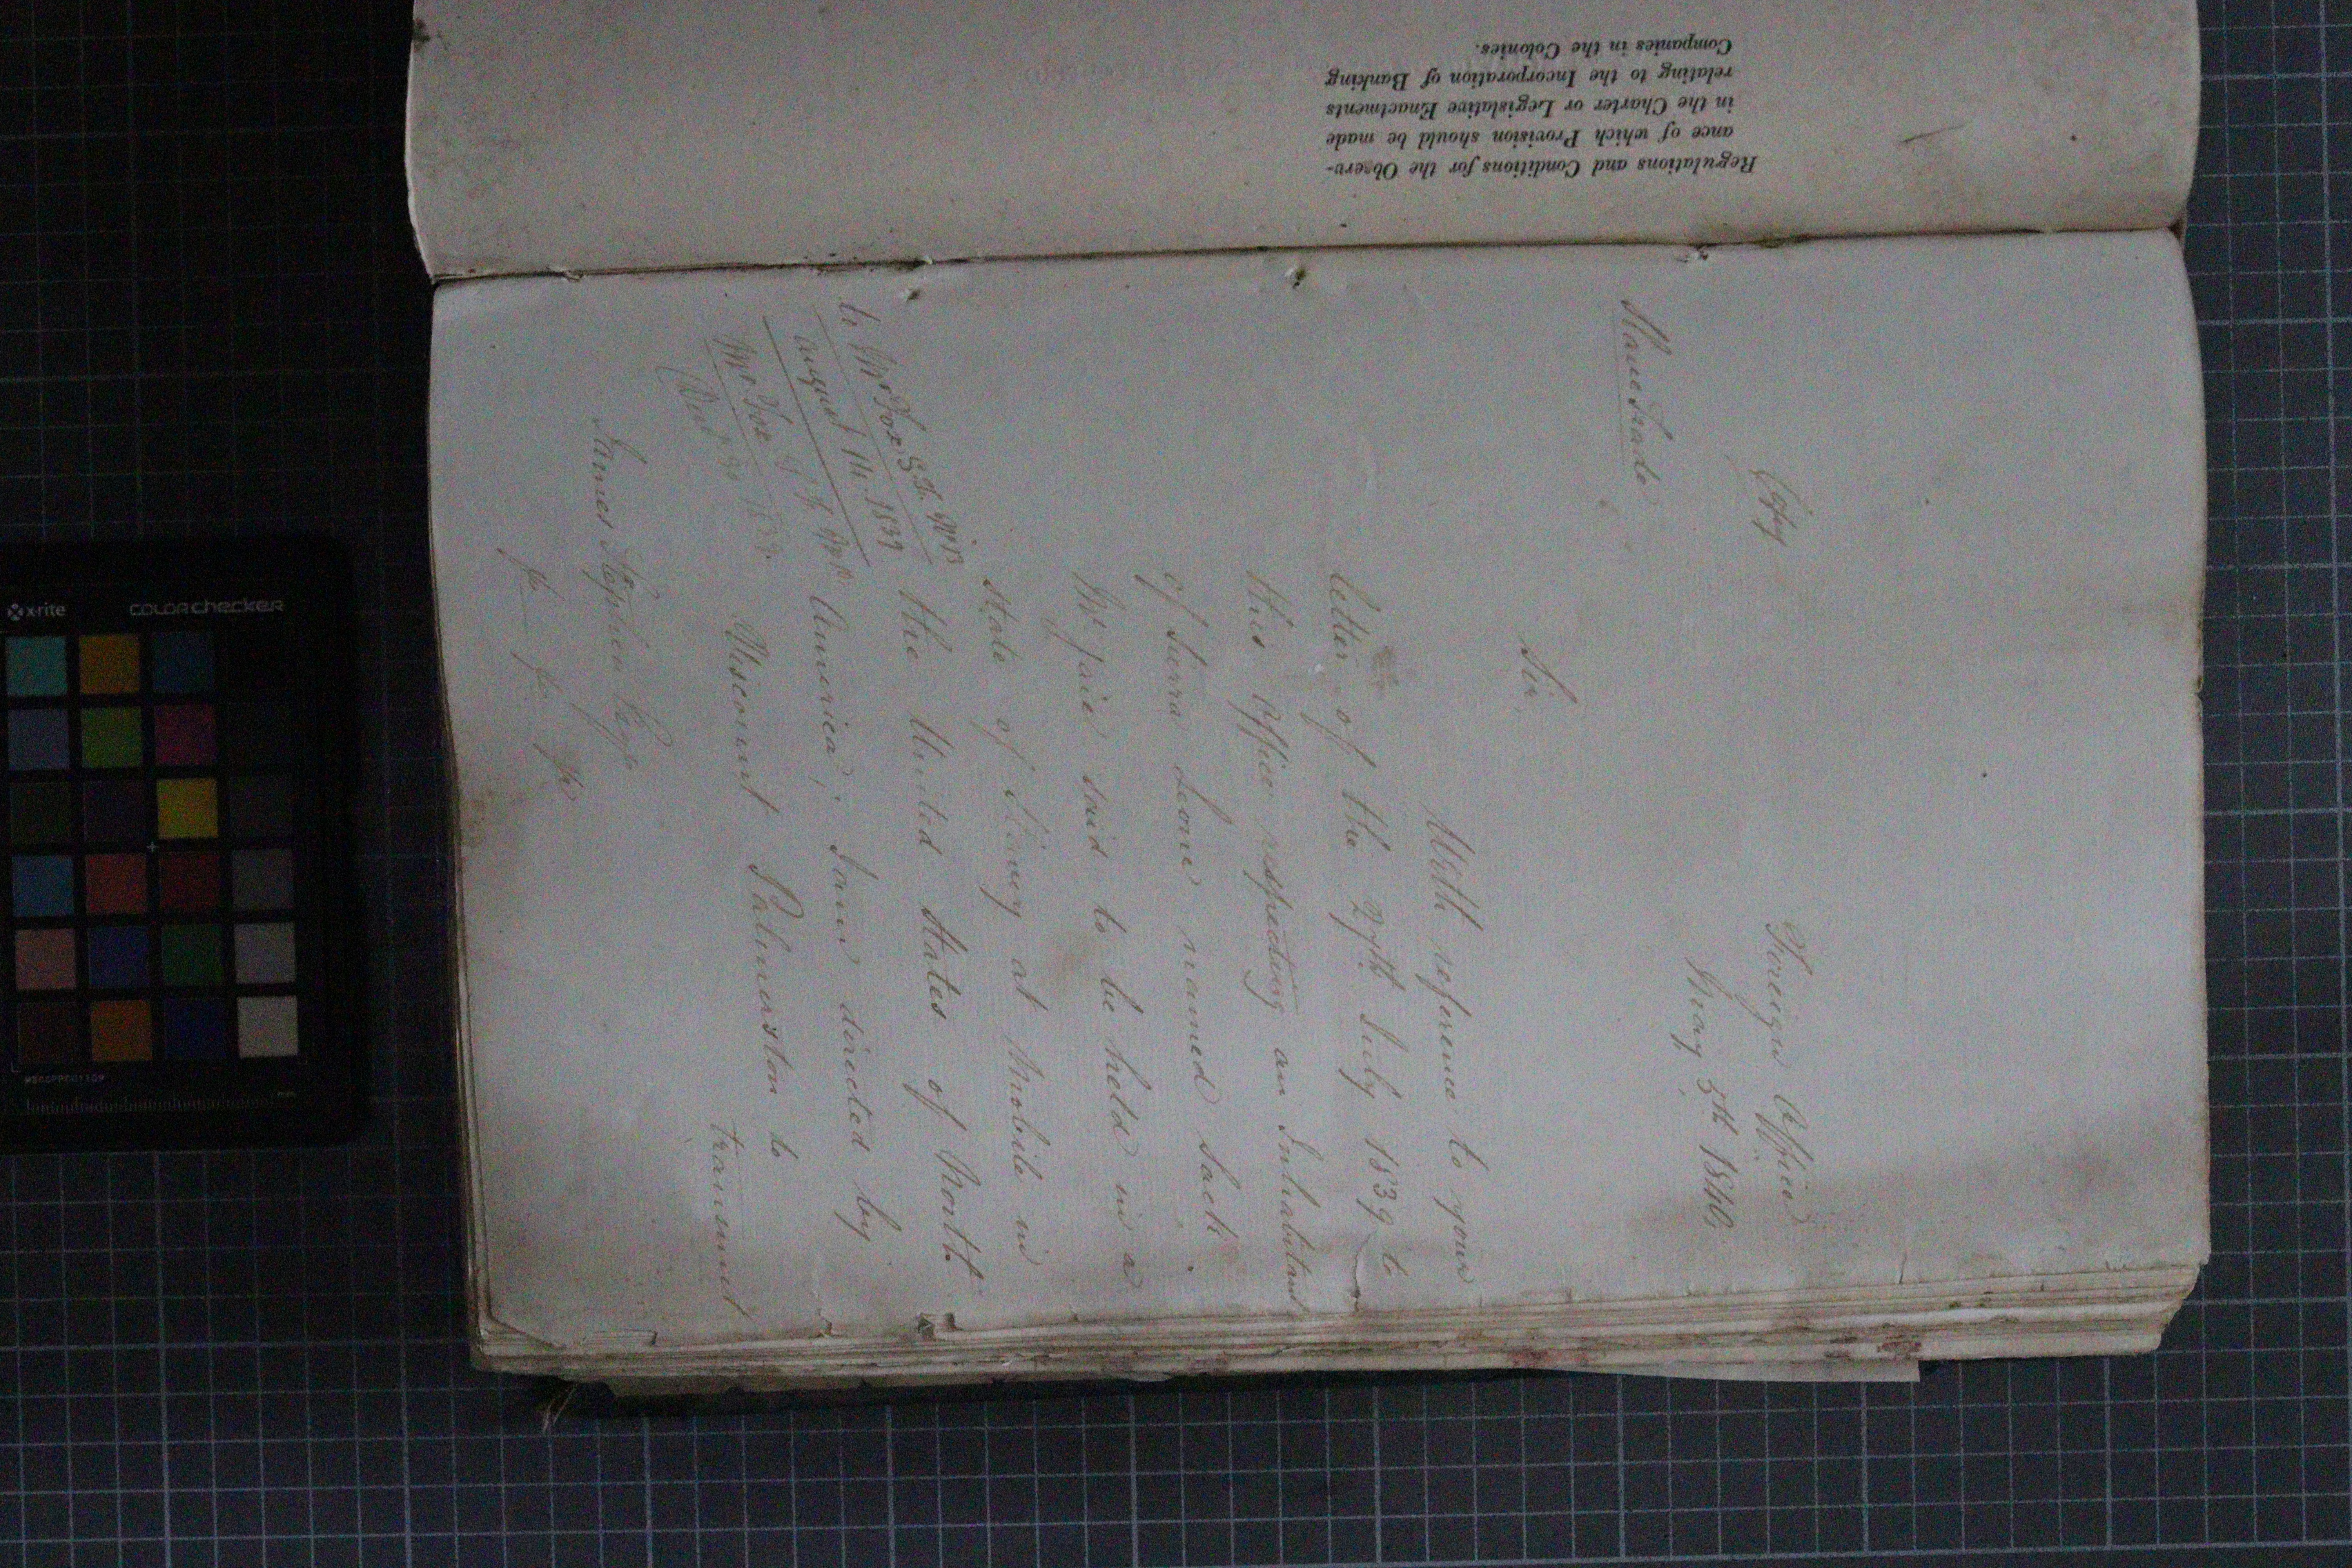 Regulations and Conditions for the Observ-
ance of which Provision should be made
in the Charter or Legislative Enactments
relating to the Incorporation of Banking
Companies in the Colonies.
Copy
Foreign Office
May 5th 1840.
Slave Trade
Sir,
With reference to your
letter of the 27th July 1839 to
this Office respecting an Inhabitant
of Sierra Leone named Jack
said to be held in a
state of Slavery at Mobile in
the United States of North
America; I am directed by
Viscount Palmerston to
transmit
to Mr Fox S.T. No 13
August 14. 1839
Mr Fox S.T.
James Stephen Esqr
&c &c &c
x-rite
colorchecker